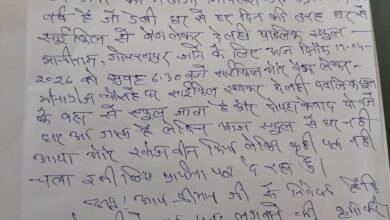 वर्ष है जो इसी घर से हर दिन की तरह घर से
साईकिल से बैग लेकर देलही पब्लिक स्कुल
गोरखपुर जाने के लिए आज दिनांक 17-04-
2026 को सुबह 6:30 बजे साईकिल और बैग लेकर
चौराहे पर साईकिल रखकर देलही पब्लिक स्कुल
के बस से स्कुल जाता है और दोपहर बाद 2 बजे
घर आ जाता है लेकिन आज स्कुल से घर नही
आया और खोज बीन किया लेकिन कही पता नही
चला इसी लिए प्रार्थना पत्र दे रहा हूँ।
अतः श्रीमान जी से निवेदन है कि